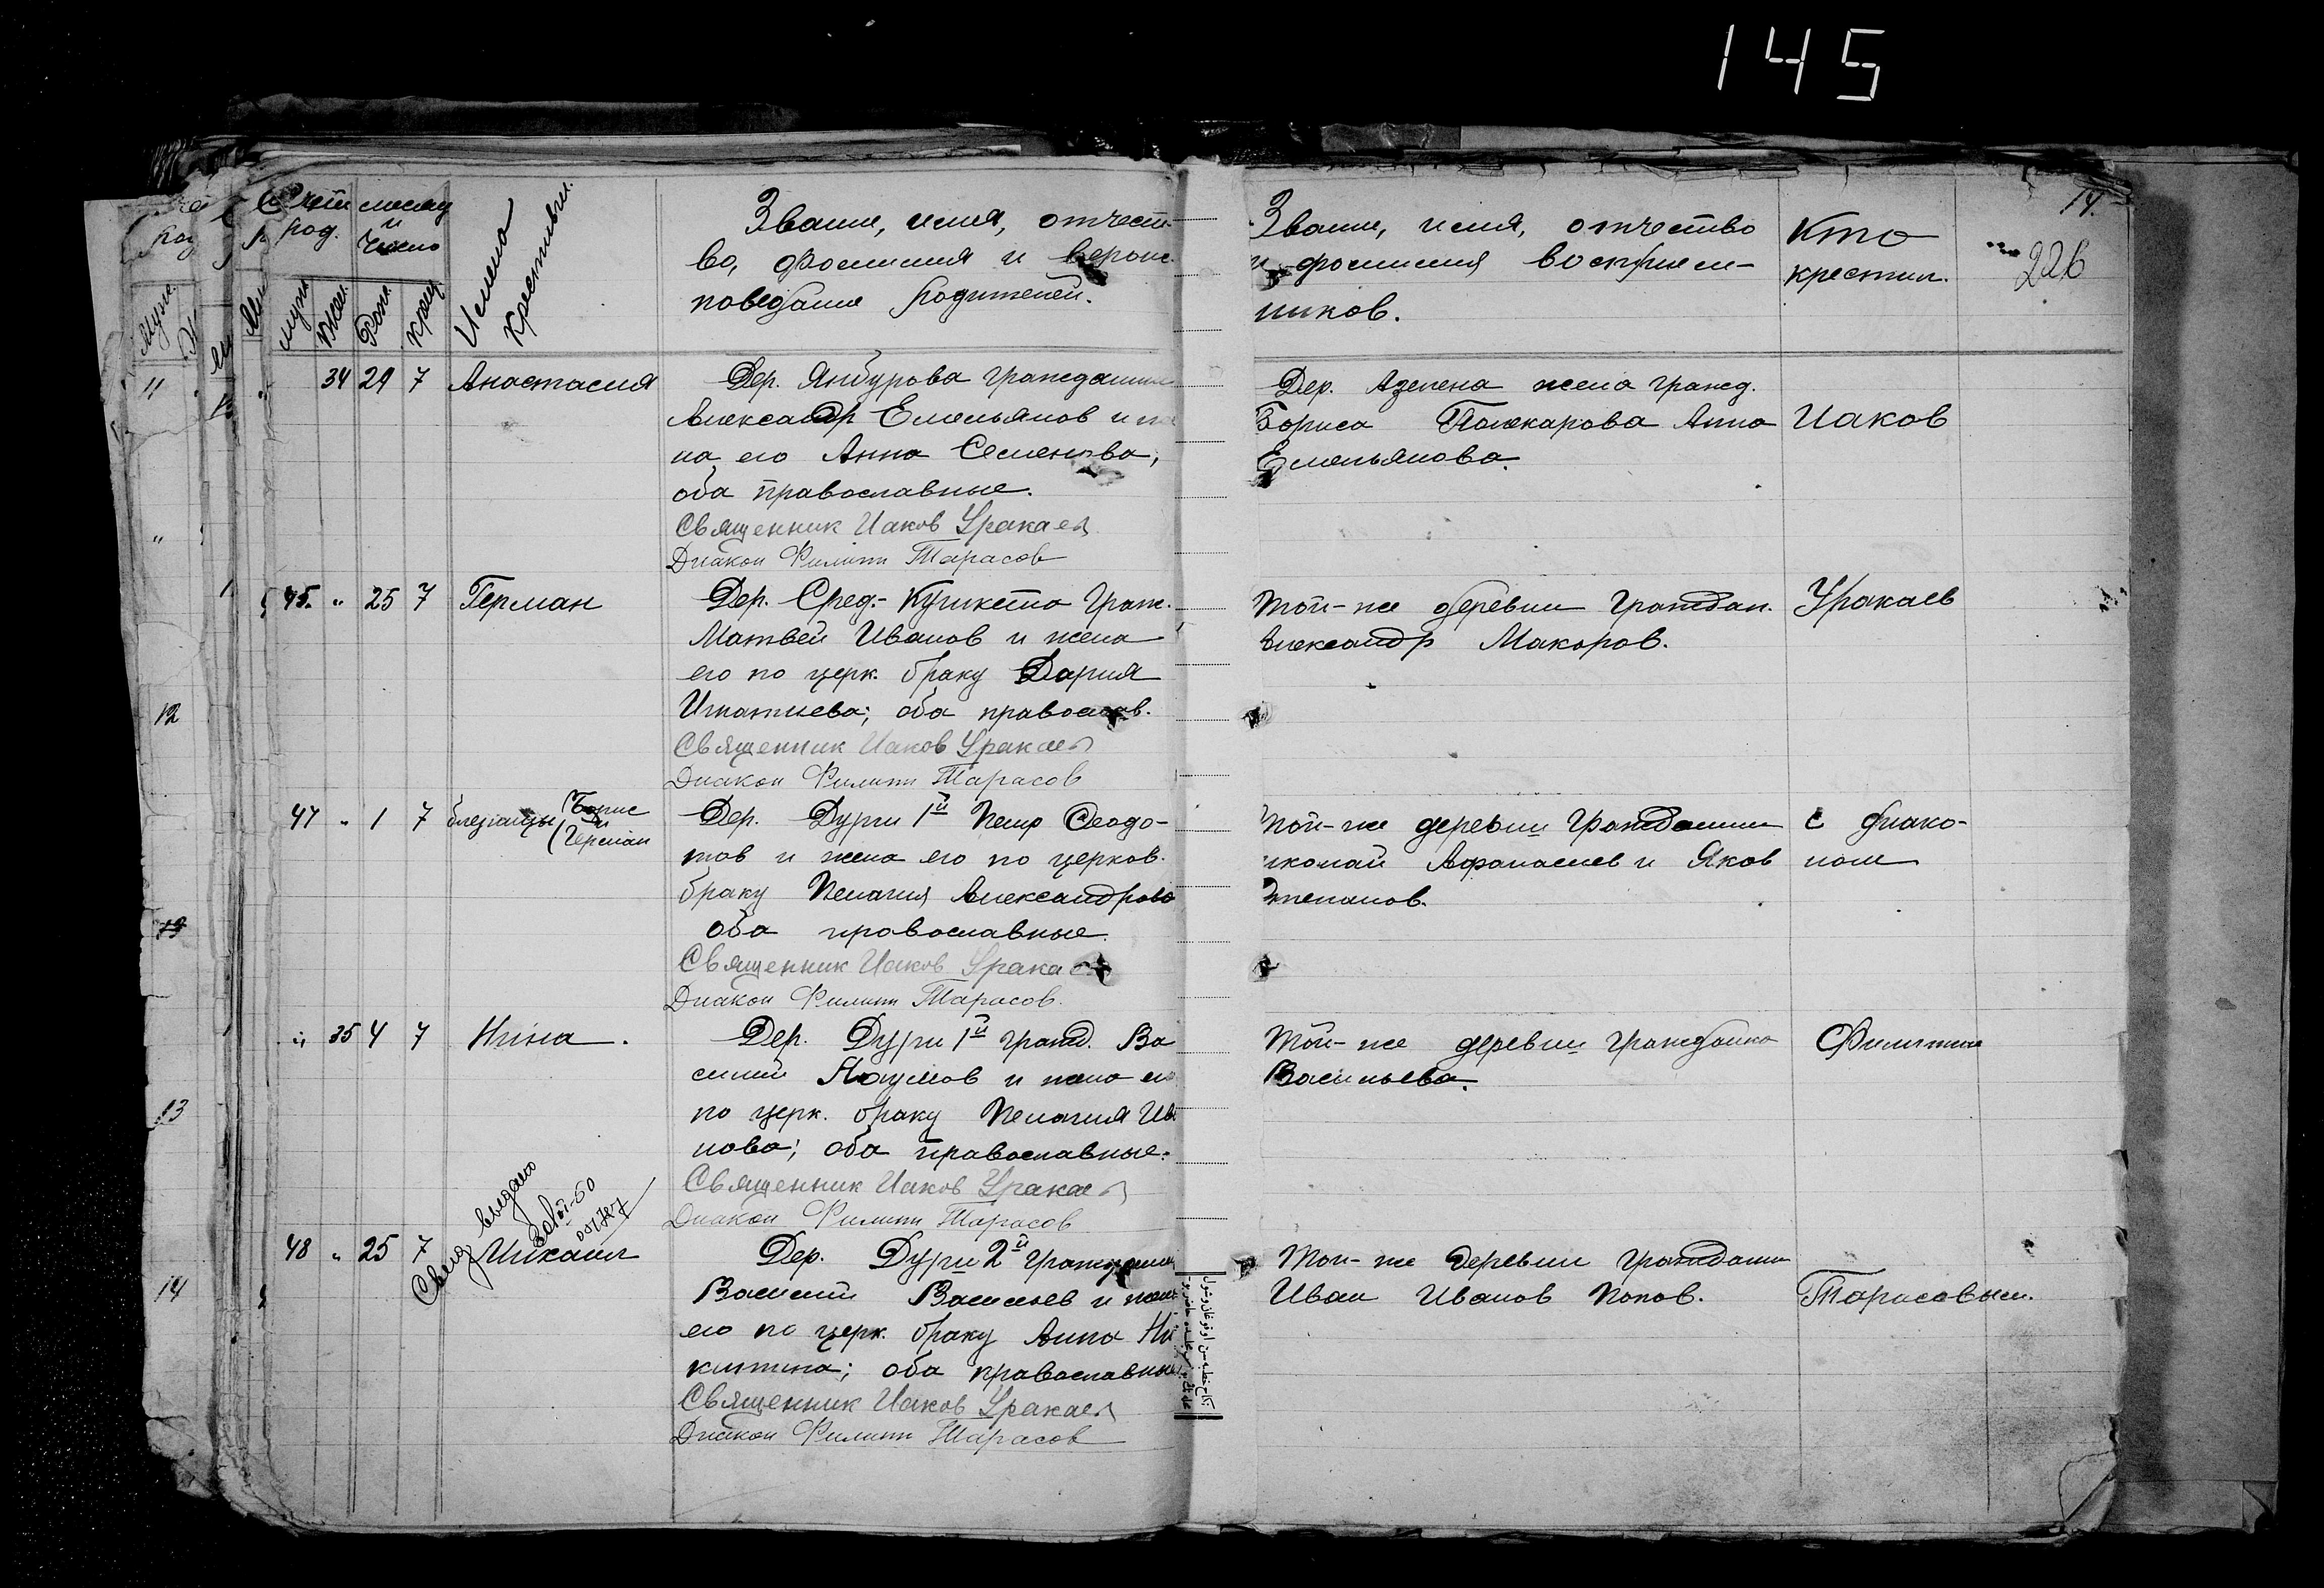 145
14.
226
Счет род.
месяц и число
муж. жен. рож. крещ.
Имена крестивш.
Звание, имя, отчест-
во, фамилия и вероис-
поведание родителей.
Звание, имя, отчество
и фамилия восприем-
ников.
Кто
крестил.
34 29 7 Анастасия
Дер. Янбурова гражданин
Александр Емельянов и
на его Анна Семенова,
оба православные.
Священник Иаков Уракаев
Диакон Филипп Тарасов
Дер. Азелена жена гражд.
Бориса Поликарова Анна
Емельянова.
Иаков
45. " 25 7 Герман
Дер. Сред.- Кушкета граж.
Матвей Иванов и жена
его по церк. браку Дария
Игнатиева; оба православ.
Священник Иаков Уракаев
Диакон Филипп Тарасов
Той-же деревни граждан.
Александр Макаров.
Уракаев
47 " 1 7 близнецы (Борис и Герман
Дер. Дурги 1й Петр Феодо-
тов и жена его по церков.
браку Пелагия Александрова
оба православные.
Священник Иаков Уракаев
Диакон Филипп Тарасов.
Той-же деревни гражданин
иколай Афанасиев и Яков
Степанов.
с диако-
ном
" 35 4 7 Нина.
Дер. Дурги 1й гражд. Ва
силий Наумов и жена его
по церк. браку Пелагия Ив
нова; оба православные.
Священник Иаков Уракаев
Диакон Филипп Тарасов
Той-же деревни гражданка
Васильева.
Филиппом
Свид. выдано
48 " 25 7 Михаил
Дер. Дурги 2й гражданин
Василий Васильев и жена
его по церк. браку Анна Ни
китина; оба православные
Священник Иаков Уракаев
Диакон Филипп Тарасов
Той-же деревни граждани
Иван Иванов Попов.
Тарасовым.